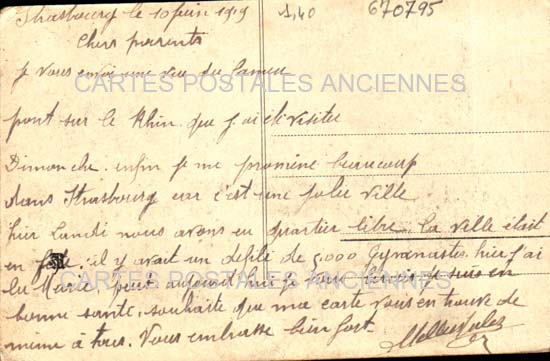 Strasbourg le 10 juin 1919
1,40
670795
Chers parents
je vous envoi une vue du fameu
CARTES POSTALES ANCIENNES
pont sur le Rhin que j'ai visiter
Dimanche enfin je me promène beaucoup
dans Strasbourg car c'est une jolie ville
hier Lundi nous avons eu quartier libre la ville était
en fête il y avait un défilé de 5,000 Gymnastes hier j'ai
CARTES POSTALES ANCIENNES
je suis en
bonne santé souhaite que ma carte vous en trouve de
même à tous. Vous embrasse bien fort.